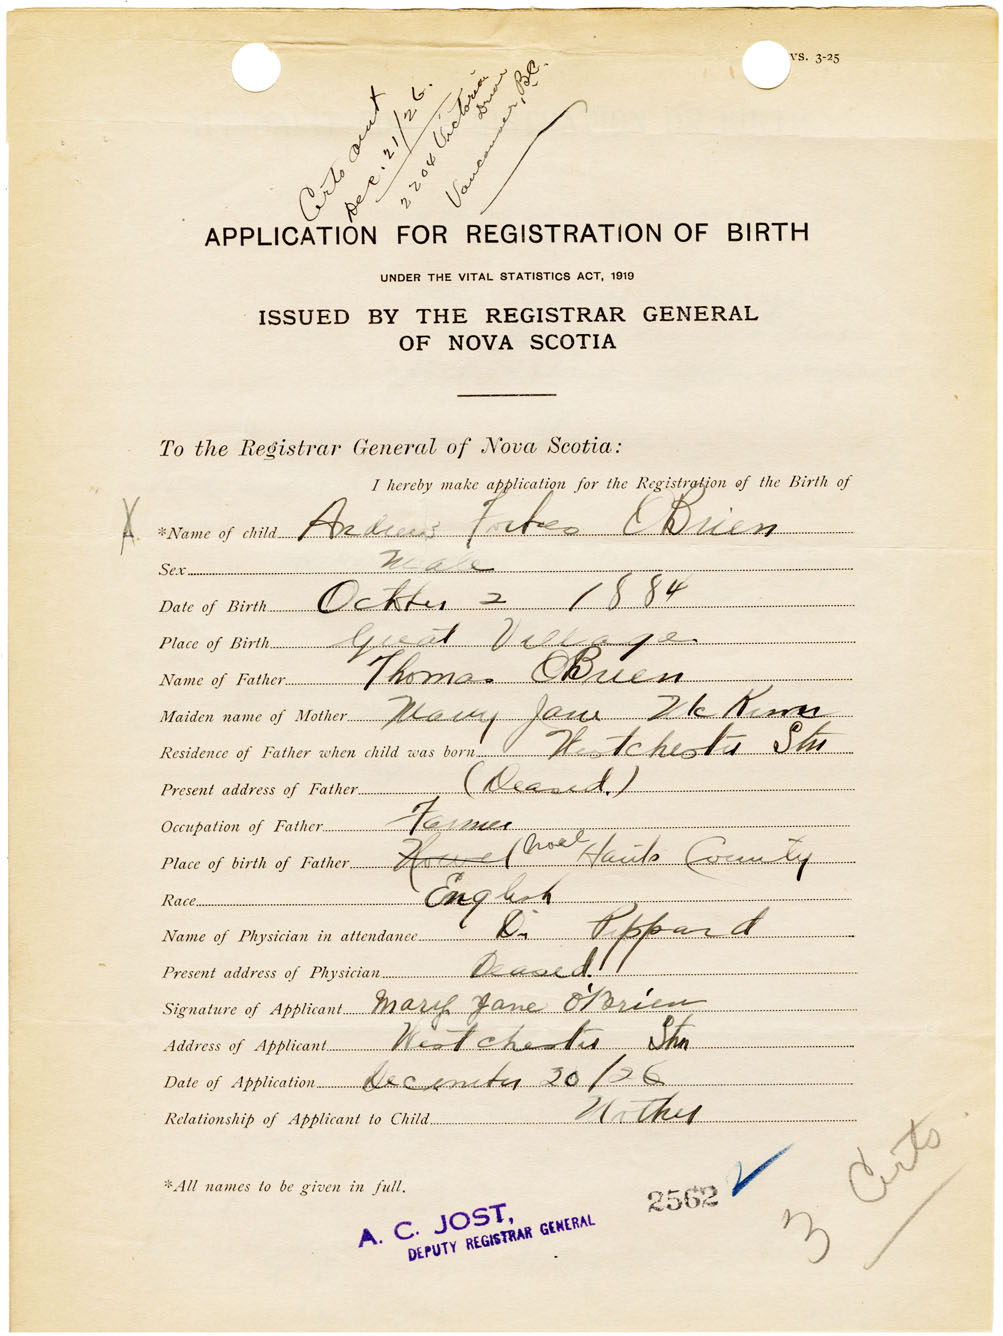 vs. 3-25
Certs sent
Dec. 21/26.
2204 Victoria
Drive
Vancouver, B.C.
APPLICATION FOR REGISTRATION OF BIRTH
UNDER THE VITAL STATISTICS ACT, 1919
ISSUED BY THE REGISTRAR GENERAL
OF NOVA SCOTIA
To the Registrar General of Nova Scotia:
I hereby make application for the Registration of the Birth of
X *Name of child Andrew Forbes O'Brien
Sex Male
Date of Birth October 2 1884
Place of Birth Great Village.
Name of Father Thomas O'Brien
Maiden name of Mother Mary Jane McKim
Residence of Father when child was born Westchester Stn
Present address of Father (Deased.)
Occupation of Father Farmer
Place of birth of Father Nowel (Noel Hants County
Race English
Name of Physician in attendance Dr. Peppard
Present address of Physician Deased.
Signature of Applicant Mary Jane O'Brien
Address of Applicant Westchester Stn
Date of Application December 20/26
Relationship of Applicant to Child Mother
*All names to be given in full.
2562
A. C. JOST,
DEPUTY REGISTRAR GENERAL
3 Certs